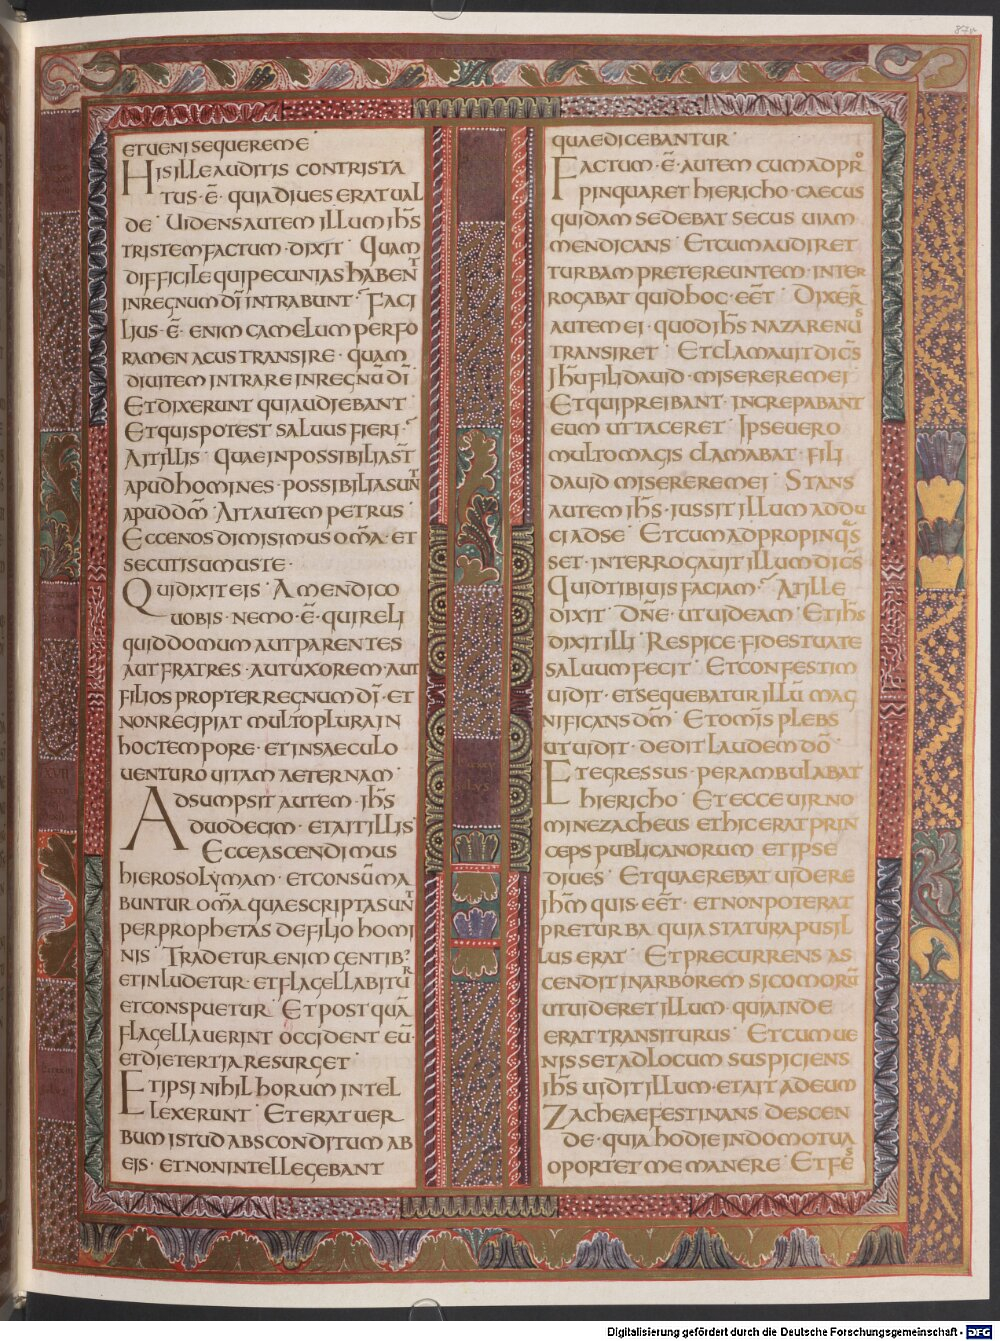 87v
ET UENI SEQUERE ME
HIS ILLE AUDITIS CONTRISTA
TUS · Ē · QUIA DIUES ERAT UAL
DE · UIDENS AUTEM ILLUM IH̄S
TRISTEM FACTUM · DIXIT · QUAM
DIFFICILE QUI PECUNIAS HABENT
IN REGNUM DĪ INTRABUNT · FACI
LIUS · Ē · ENIM CAMELUM PER FO
RAMEN ACUS TRANSIRE · QUAM
DIUITEM INTRARE IN REGNŪ DĪ
ET DIXERUNT QUI AUDIEBANT
ET QUIS POTEST SALUUS FIERI ·
AIT ILLIS · QUAE INPOSSIBILIA ST̄
APUD HOMINES · POSSIBILIA SUNT
APUD DM̄ · AIT AUTEM PETRUS
ECCE NOS DIMISIMUS OM̄A · ET
SECUTI SUMUS TE ·
QUI DIXIT EIS · AMEN DICO
UOBIS · NEMO · Ē · QUI RELI
QUID DOMUM AUT PARENTES
AUT FRATRES · AUT UXOREM · AUT
FILIOS PROPTER REGNUM DĪ · ET
NON RECIPIAT MULTO PLURA IN
HOC TEMPORE · ET IN SAECULO
UENTURO UITAM AETERNAM ·
ADSUMPSIT AUTEM · IH̄S
DUODECIM · ET AIT ILLIS
ECCE ASCENDIMUS
HIEROSOLYMAM · ET CONSŪMA
BUNTUR OM̄A QUAE SCRIPTA SUNT
PER PROPHETAS DE FILIO HOMI
NIS · TRADETUR ENIM GENTIB·
ET INLUDETUR · ET FLAGELLABITUR
ET CONSPUETUR · ET POST QUĀ
FLAGELLAUERINT OCCIDENT EŪ ·
ET DIE TERTIA RESURGET ·
ET IPSI NIHIL HORUM INTEL
LEXERUNT · ET ERAT UER
BUM ISTUD ABSCONDITUM AB
EIS · ET NON INTELLEGEBANT
QUAE DICEBANTUR ·
FACTUM · Ē · AUTEM CUM ADPRO
PINQUARET HIERICHO · CAECUS
QUIDAM SEDEBAT SECUS UIAM
MENDICANS · ET CUM AUDIRET
TURBAM PRETEREUNTEM · INTER
ROGABAT QUID HOC · EĒT · DIXER̄
AUTEM EI · QUOD IH̄S NAZARENUS
TRANSIRET · ET CLAMAUIT DICĒS
IH̄U FILI DAUID · MISERERE MEI ·
ET QUI PREIBANT · INCREPABANT
EUM UT TACERET · IPSE UERO
MULTO MAGIS CLAMABAT · FILI
DAUID MISERERE MEI · STANS
AUTEM IH̄S · IUSSIT ILLUM ADDU
CI AD SE · ET CUM ADPROPINQUAS
SET · INTERROGAUIT ILLUM DICĒS
QUID TIBI UIS FACIAM · AT ILLE
DIXIT · DN̄E · UT UIDEAM · ET IH̄S
DIXIT ILLI · RESPICE · FIDES TUA TE
SALUUM FECIT · ET CONFESTIM
UIDIT · ET SEQUEBATUR ILLŪ MAG
NIFICANS DM̄ · ET OMĪS PLEBS
UT UIDIT · DEDIT LAUDEM DŌ
ET EGRESSUS · PERAMBULABAT
HIERICHO · ET ECCE UIR NO
MINE ZACHEUS · ET HIC ERAT PRIN
CEPS PUBLICANORUM · ET IPSE
DIUES · ET QUAEREBAT UIDERE
IH̄M QUIS · EĒT · ET NON POTERAT
PRE TURBA · QUIA STATURA PUSIL
LUS ERAT · ET PRECURRENS AS
CENDIT IN ARBOREM SICOMORŪ
UT UIDERET ILLUM · QUIA INDE
ERAT TRANSITURUS · ET CUM UE
NISSET AD LOCUM SUSPICIENS
IH̄S UIDIT ILLUM · ET AIT AD EUM
ZACHEAE FESTINANS DESCEN
DE · QUIA HODIE IN DOMO TUA
OPORTET ME MANERE · ET FES
Digitalisierung gefördert durch die Deutsche Forschungsgemeinschaft - DFG